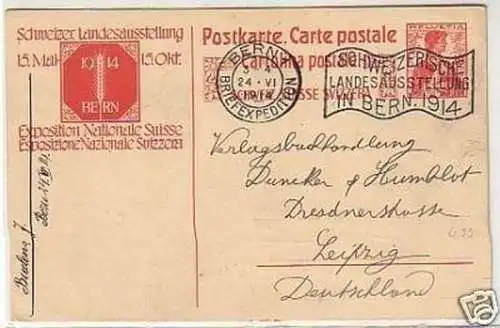 Schweizer Landesausstellung
15. Mai 15. Okt.
1914
BERN
Exposition Nationale Suisse
Esposizione Nazionale Svizzera
Postkarte. Carte postale
Cartolina postale
SCHWEIZ. SUISSE. SVIZZERA.
HELVETIA
BERN
24.VI
1914
BRIEFEXPEDITION
SCHWEIZERISCHE
LANDESAUSSTELLUNG
IN BERN. 1914
Verlagsbuchhandlung
Duncker & Humblot
Dresdnerstrasse
Leipzig
Deutschland
Bern
ebay